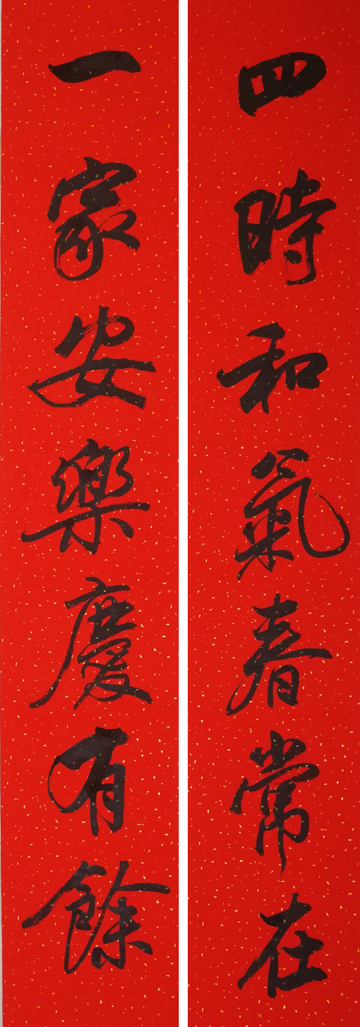 四時和氣春常在
一家安樂慶有餘